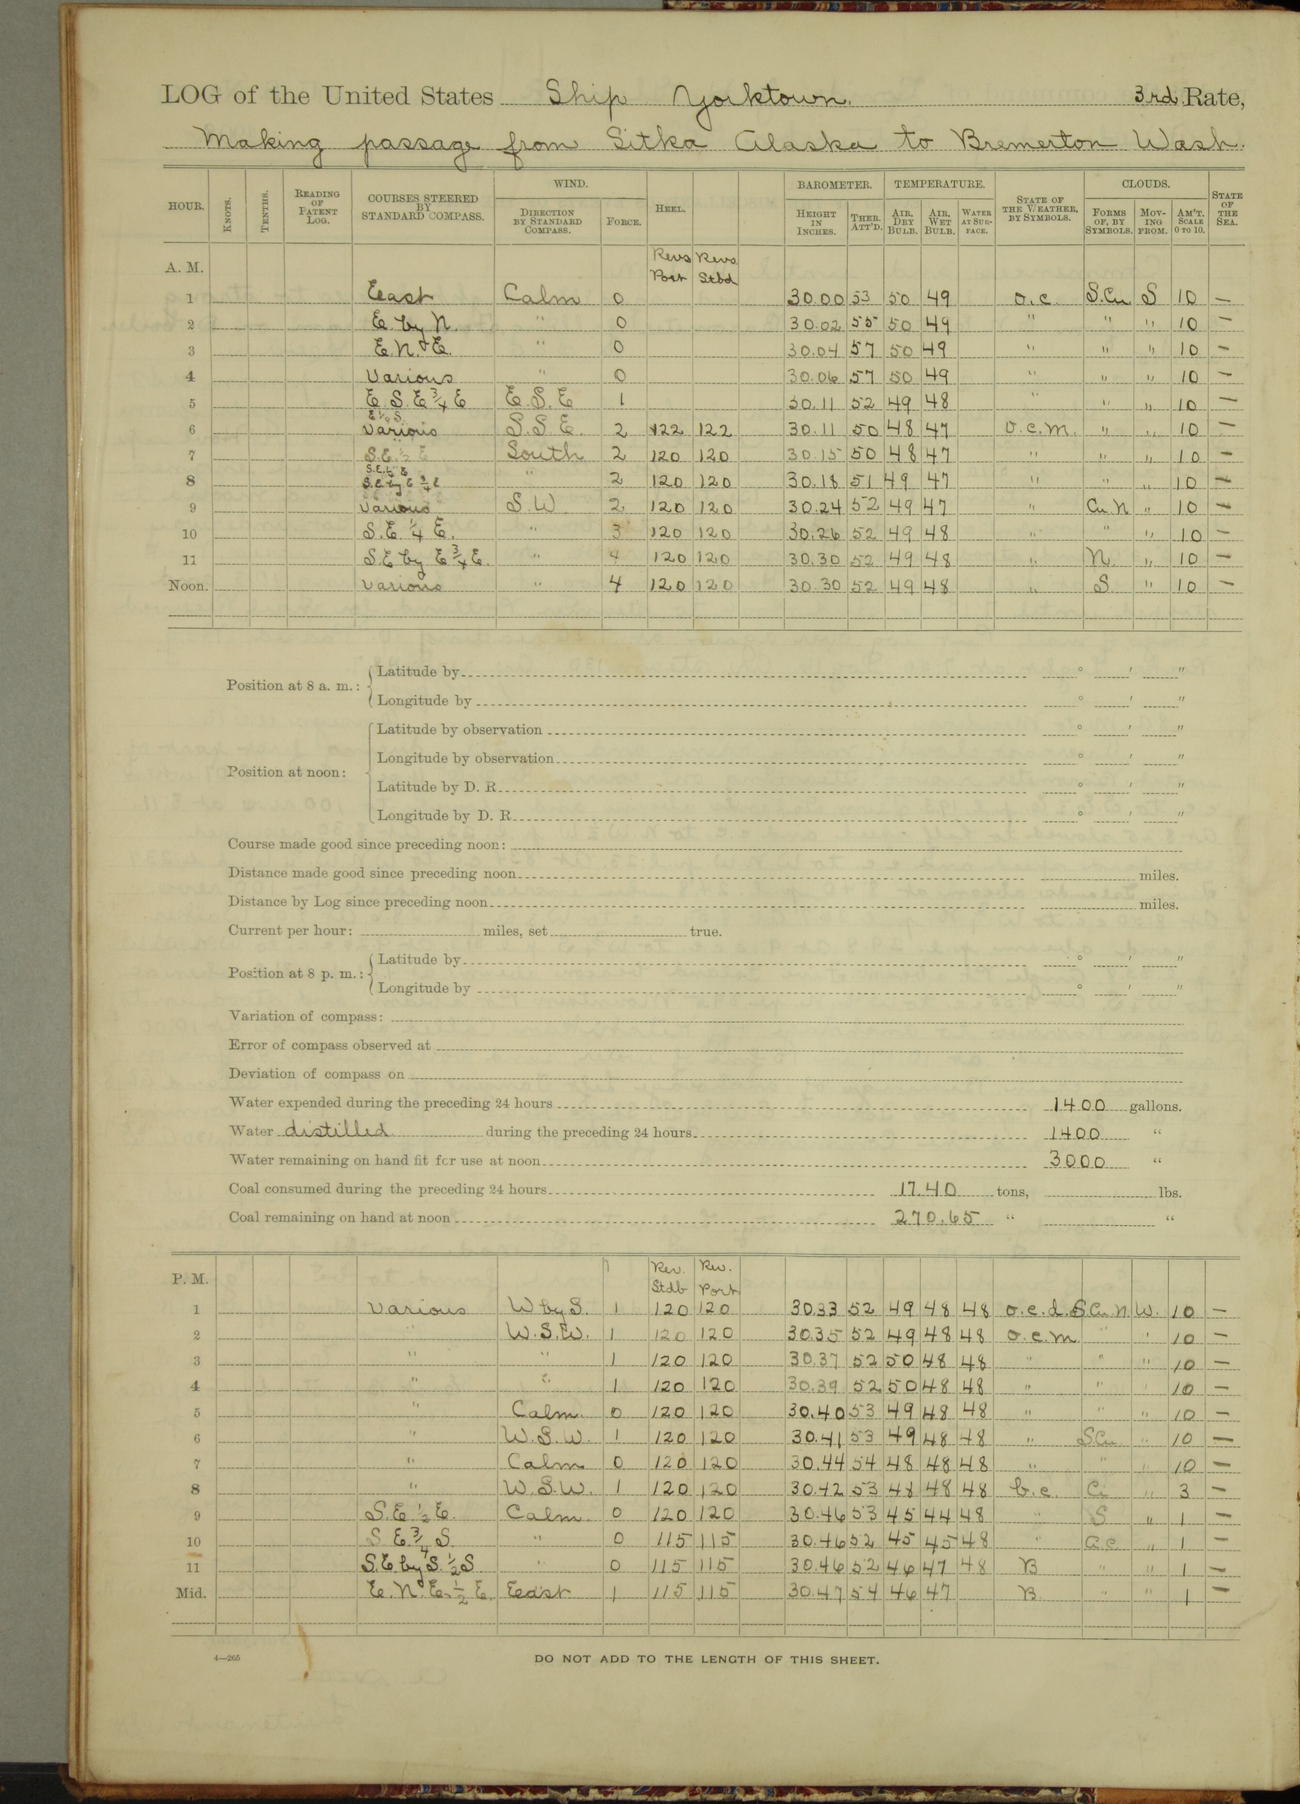 LOG of the United States Ship Yorktown. 3rd Rate,
Making passage from Sitka Alaska to Bremerton Wash.
HOUR. KNOTS. TENTHS. READING OF PATENT LOG. COURSES STEERED BY STANDARD COMPASS. WIND. DIRECTION BY STANDARD COMPASS. FORCE. HEEL. BAROMETER. HEIGHT IN INCHES. THER. ATT'D. TEMPERATURE. AIR, DRY BULB. AIR, WET BULB. WATER AT SURFACE. STATE OF THE WEATHER, BY SYMBOLS. CLOUDS. FORMS OF, BY SYMBOLS. MOVING FROM. AM'T. SCALE 0 TO 10. STATE OF THE SEA.
A. M. Revs Port Revs Stbd
1 East Calm 0 30.00 53 50 49 o.c. S.Cu S 10 —
2 E. by N. " 0 30.02 55 50 49 " " " 10 —
3 E.N.E. " 0 30.04 57 50 49 " " " 10 —
4 Various " 0 30.06 57 50 49 " " " 10 —
5 E.S.E ¾ E E.S.E 1 30.11 52 49 48 " " " 10 —
6 E ½ S. Various S.S.E. 2 122 122 30.11 50 48 47 o.c.m. " " 10 —
7 S.E. ½ E South 2 120 120 30.15 50 48 47 " " " 10 —
8 S.E. by E ¾ E " 2 120 120 30.18 51 49 47 " " " 10 —
9 Various S.W 2 120 120 30.24 52 49 47 " Cu.N " 10 —
10 S.E. ¼ E. " 3 120 120 30.26 52 49 48 " " " 10 —
11 S.E by E ¾ E. " 4 120 120 30.30 52 49 48 " N. " 10 —
Noon. Various " 4 120 120 30.30 52 49 48 " S " 10 —
Position at 8 a. m.: Latitude by ° ′ ″
Longitude by ° ′ ″
Position at noon: Latitude by observation ° ′ ″
Longitude by observation ° ′ ″
Latitude by D. R. ° ′ ″
Longitude by D. R. ° ′ ″
Course made good since preceding noon:
Distance made good since preceding noon miles.
Distance by Log since preceding noon miles.
Current per hour: miles, set true.
Position at 8 p. m.: Latitude by ° ′ ″
Longitude by ° ′ ″
Variation of compass:
Error of compass observed at
Deviation of compass on
Water expended during the preceding 24 hours 1400 gallons.
Water distilled during the preceding 24 hours 1400 "
Water remaining on hand fit for use at noon 3000 "
Coal consumed during the preceding 24 hours 17.40 tons, lbs.
Coal remaining on hand at noon 270.65 " "
P. M. Rev. Stdb Rev. Port
1 Various W by S. 1 120 120 30.33 52 49 48 48 o.c.d. S.Cu.N W. 10 —
2 " W.S.W. 1 120 120 30.35 52 49 48 48 o.c.m " " 10 —
3 " " 1 120 120 30.37 52 50 48 48 " " " 10 —
4 " " 1 120 120 30.39 52 50 48 48 " " " 10 —
5 " Calm. 0 120 120 30.40 53 49 48 48 " " " 10 —
6 " W.S.W. 1 120 120 30.41 53 49 48 48 " S.Cu. " 10 —
7 " Calm 0 120 120 30.44 54 48 48 48 " " " 10 —
8 " W.S.W. 1 120 120 30.42 53 48 48 48 b.c. Ci. " 3 —
9 S.E. ½ E. Calm 0 120 120 30.46 53 45 44 48 " S " 1 —
10 S E ¾ S " 0 115 115 30.46 52 45 45 48 " " 1 —
11 S.E by S. ½ S " 0 115 115 30.46 52 46 47 48 B " " 1 —
Mid. E.N.E. ½ E. East 1 115 115 30.47 54 46 47 B. " " 1 —
4—265
DO NOT ADD TO THE LENGTH OF THIS SHEET.